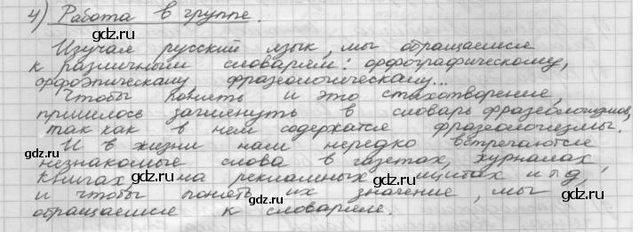 4) Работа в группе.
Изучая русский язык, мы обращаемся
к различным словарям: орфографическому,
орфоэпическому фразеологическому...
Чтобы понять и это стихотворение,
пришлось заглянуть в словарь фразеологизмов,
так как в нем содержатся фразеологизмы.
И в жизни нам нередко встречаются
незнакомые слова в газетах, журналах
книгах, на рекламных щитах и т.д,
и чтобы понять их значение, мы
обращаемся к словарям.
gdz.ru